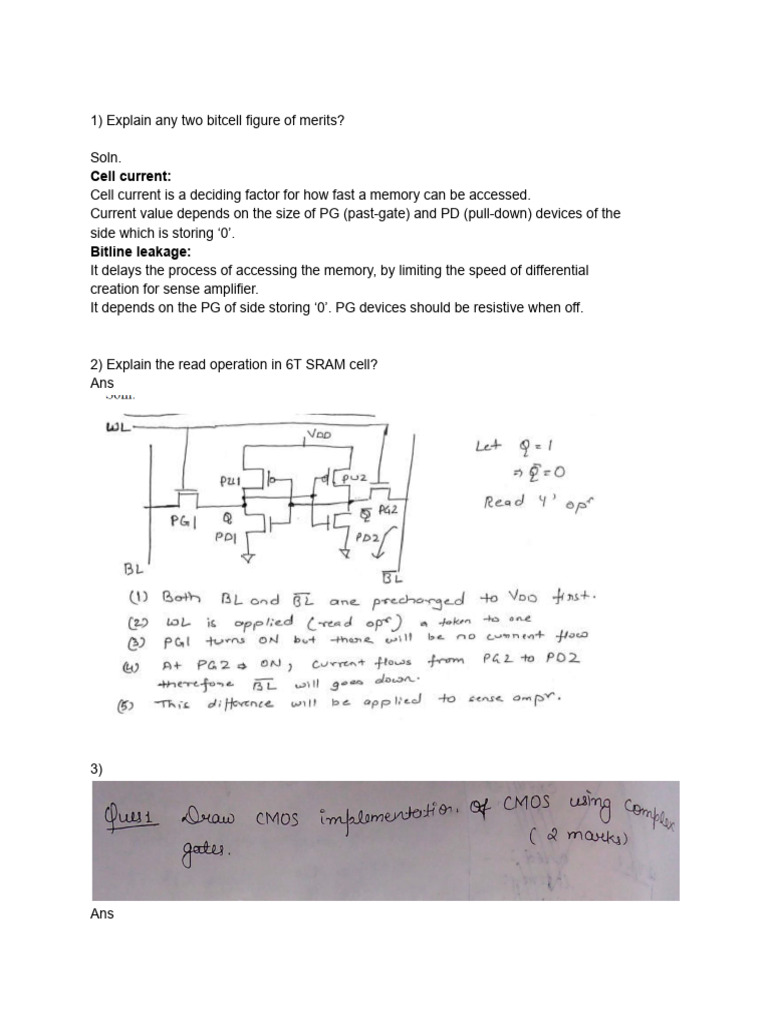 1) Explain any two bitcell figure of merits?
Soln.
Cell current:
Cell current is a deciding factor for how fast a memory can be accessed.
Current value depends on the size of PG (past-gate) and PD (pull-down) devices of the
side which is storing ‘0’.
Bitline leakage:
It delays the process of accessing the memory, by limiting the speed of differential
creation for sense amplifier.
It depends on the PG of side storing ‘0’. PG devices should be resistive when off.
2) Explain the read operation in 6T SRAM cell?
Ans
Soln.
WL
VDD
Let Q = 1
PU1
PU2
⇒ Q̅ = 0
PG1
Q
Q̅
PG2
Read
opr
PD1
PD2
BL
B̅L̅
(1) Both BL and B̅L̅ are precharged to VDD first.
(2) WL is applied (read opr) a token to one
(3) PG1 turns ON but there will be no current flow
(4) At PG2 ⇒ ON, Current flows from PG2 to PD2
therefore B̅L̅ will goes down.
(5) This difference will be applied to sense ampr.
3)
Ques1 Draw CMOS implementation of CMOS using Complex
gates.
(2 marks)
Ans